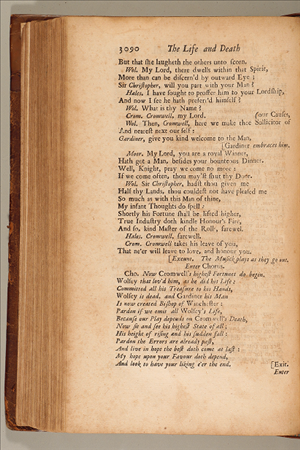 3090 The Life and Death
But that she laugheth the others unto scorn.
Wol. My Lord, there dwells within that Spirit,
More than can be discern'd by outward Eye:
Sir Christopher, will you part with your Man?
Hales. I have sought to proffer him to your Lordship,
And now I see he hath preferr'd himself?
Wol. What is thy Name?
Crom. Cromwell, my Lord.
Wol. Then, Cromwell, here we make thee Sollicitor of our Causes,
And nearest next our self:
Gardiner, give you kind welcome to the Man,
Gardiner embraces him.
Moor. My Lord, you are a royal Winner,
Hath got a Man, besides your bounteous Dinner.
Well, Knight, pray we come no more;
If we come often, thou may'st shut thy Door.
Wol. Sir Christopher, hadst thou given me
Half thy Lands, thou couldest not have pleased me
So much as with this Man of thine,
My infant Thoughts do spell:
Shortly his Fortune shall be lifted higher,
True Industry doth kindle Honour's Fire,
And so, kind Master of the Rolls, farewel.
Hales. Cromwell, farewel.
Crom. Cromwell takes his leave of you,
That ne'er will leave to love, and honour you.
[Exeunt. The Musick plays as they go out.
Enter Chorus.
Cho. Now Cromwell's highest Fortunes do begin.
Wolsey that lov'd him, as he did his Life:
Committed all his Treasure to his Hands,
Wolsey is dead, and Gardiner his Man
Is now created Bishop of Winchester:
Pardon if we omit all Wolsey's Life,
Because our Play depends on Cromwell's Death,
Now sit and see his highest State of all;
His height of rising and his sudden fall:
Pardon the Errors are already past,
And live in hope the best doth come at last:
My hope upon your Favour doth depend,
And look to have your liking e'er the end. [Exit.
Enter